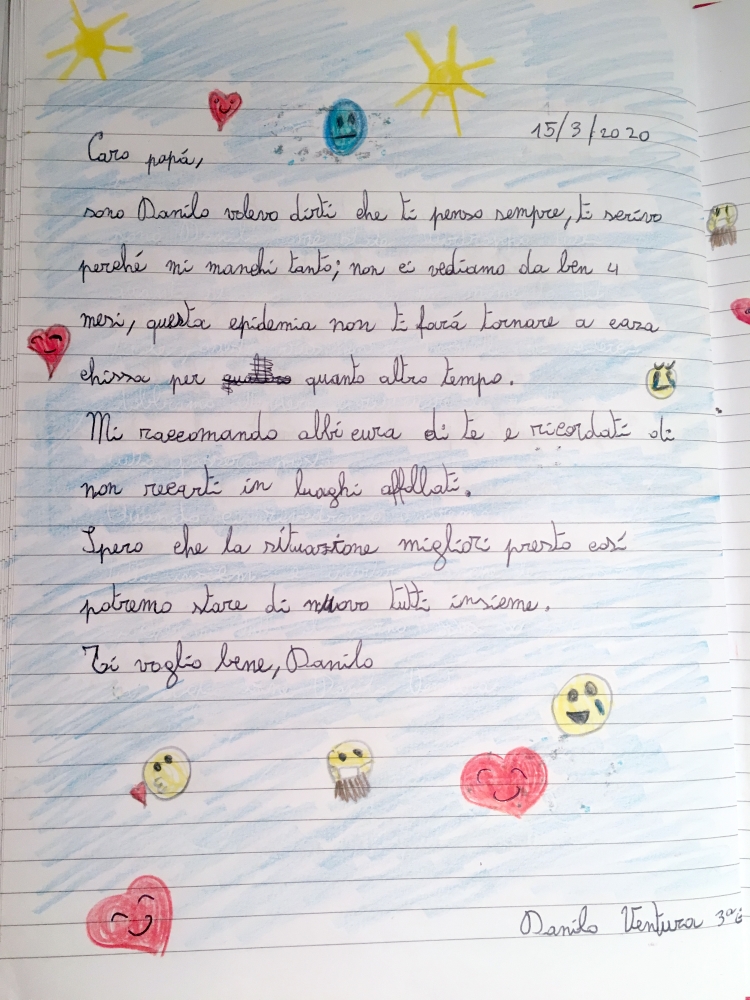 15/3/2020
Caro papá,
sono Danilo volevo dirti che ti penso sempre, ti scrivo
perché mi manchi tanto; non ci vediamo da ben 4
mesi, questa epidemia non ti fará tornare a casa
chissa per quanto altro tempo.
Mi raccomando abbi cura di te e ricordati di
non recarti in luoghi affollati.
Spero che la situazione migliori presto cosí
potremo stare di nuovo tutti insieme.
Ti voglio bene, Danilo
Danilo Ventura